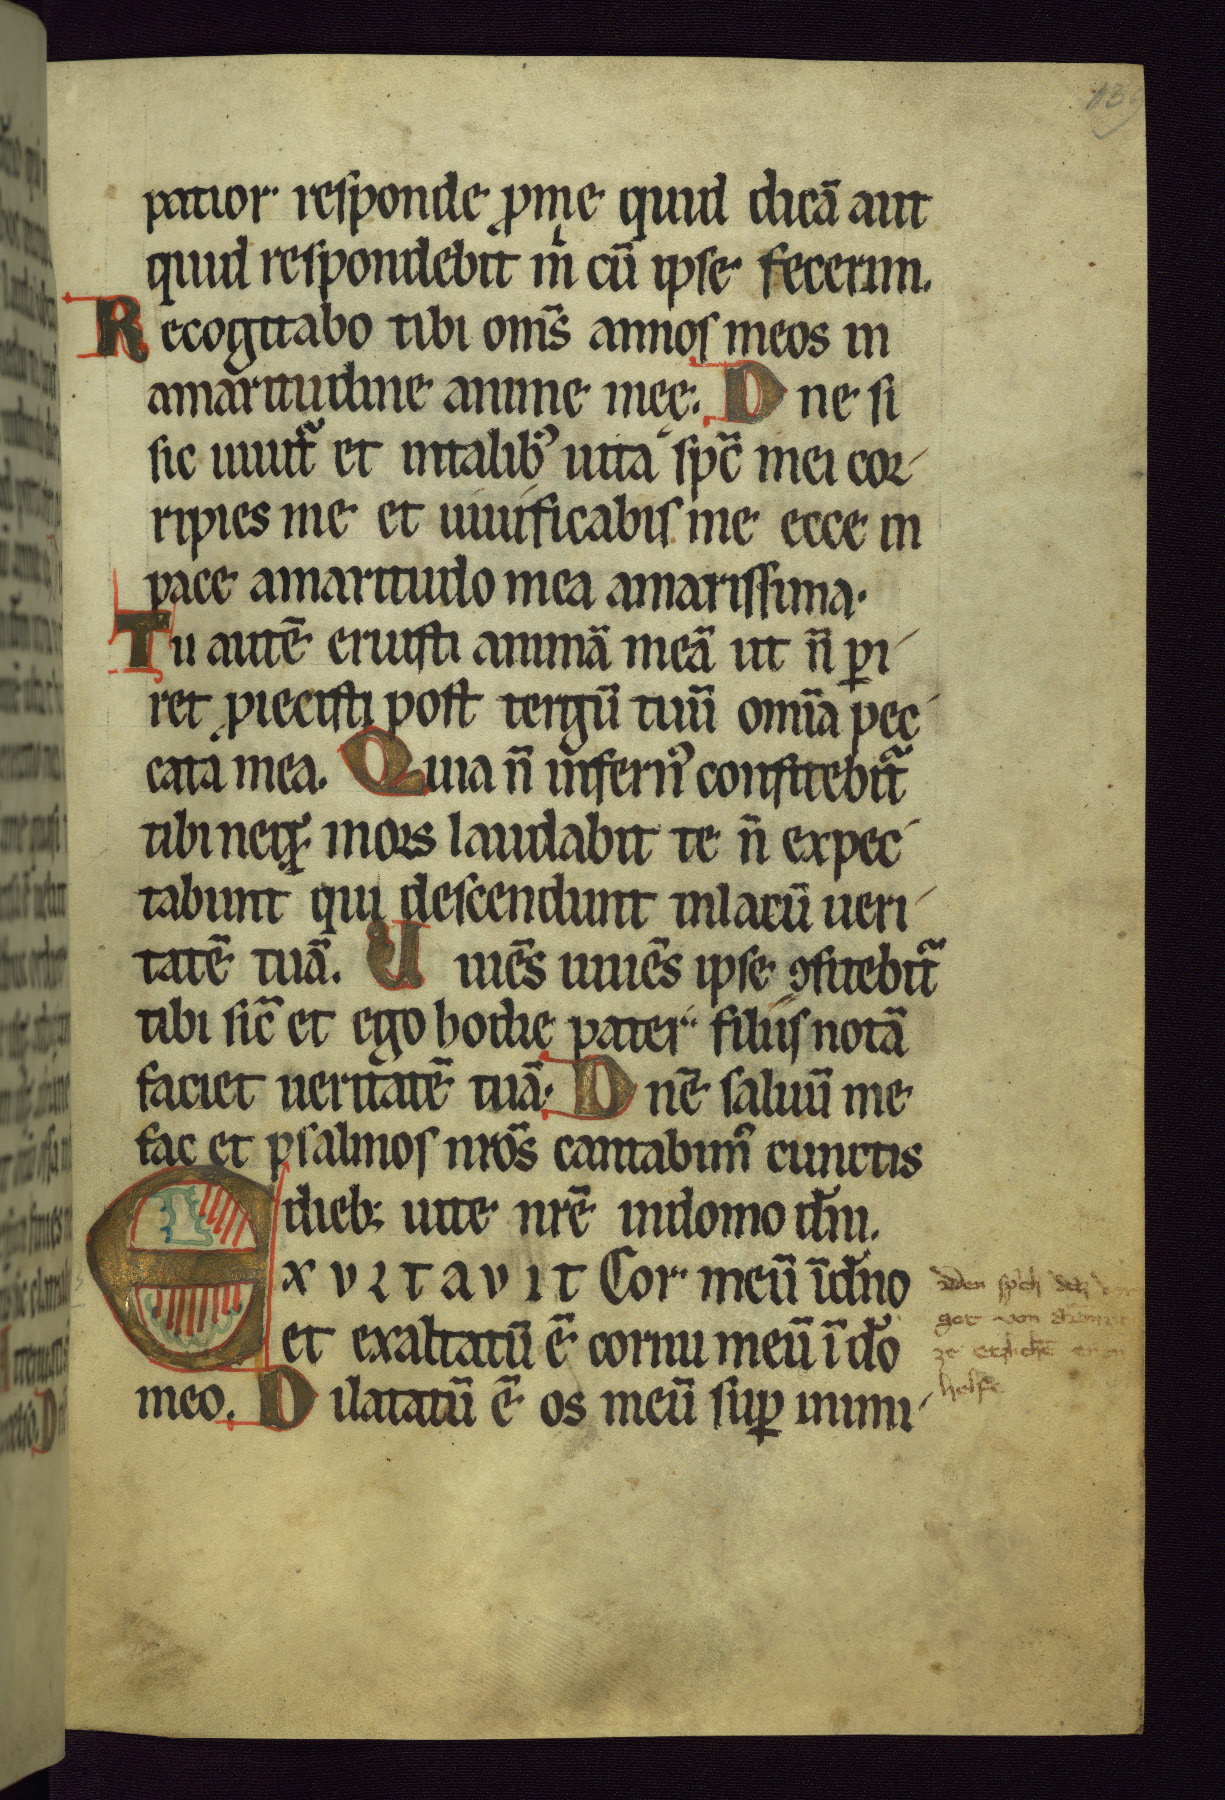 patior· responde ꝓme quid dicā aut
quid respondebit m̄ cū ipse fecerim.
Recogitabo tibi om̄s annos meos in
amaritudine anime meę. Dne si
sic uiuit᷑ et intalib᷒ uita sp̄c mei cor-
ripies me et uiuificabis me ecce in
pace amaritudo mea amarissima·
Tu autē eruisti animā meā ut n̄ ꝑi-
ret ꝓiecisti post tergū tuū om̄ia pec-
cata mea. Quia n̄ infern᷒ confitebit᷑
tibi neqꝫ mors laudabit te n̄ expec-
tabunt qui descendunt inlacū ueri-
tatē tuā. Uiuēs uiuēs ipse ꝯfitebit᷑
tibi sic̄ et ego hodie pater filiis notā
faciet ueritatē tuā· Dnē saluū me
fac et psalmos nr̄os cantabim᷒ cunctis
dieb; uite nrē indomo dn̄i.
EXULTAVIT Cor meū ī dn̄o
et exaltatū ē cornu meū ī dō
meo. Dilatatū ē os meū suꝑ inimi-
got von
helfe